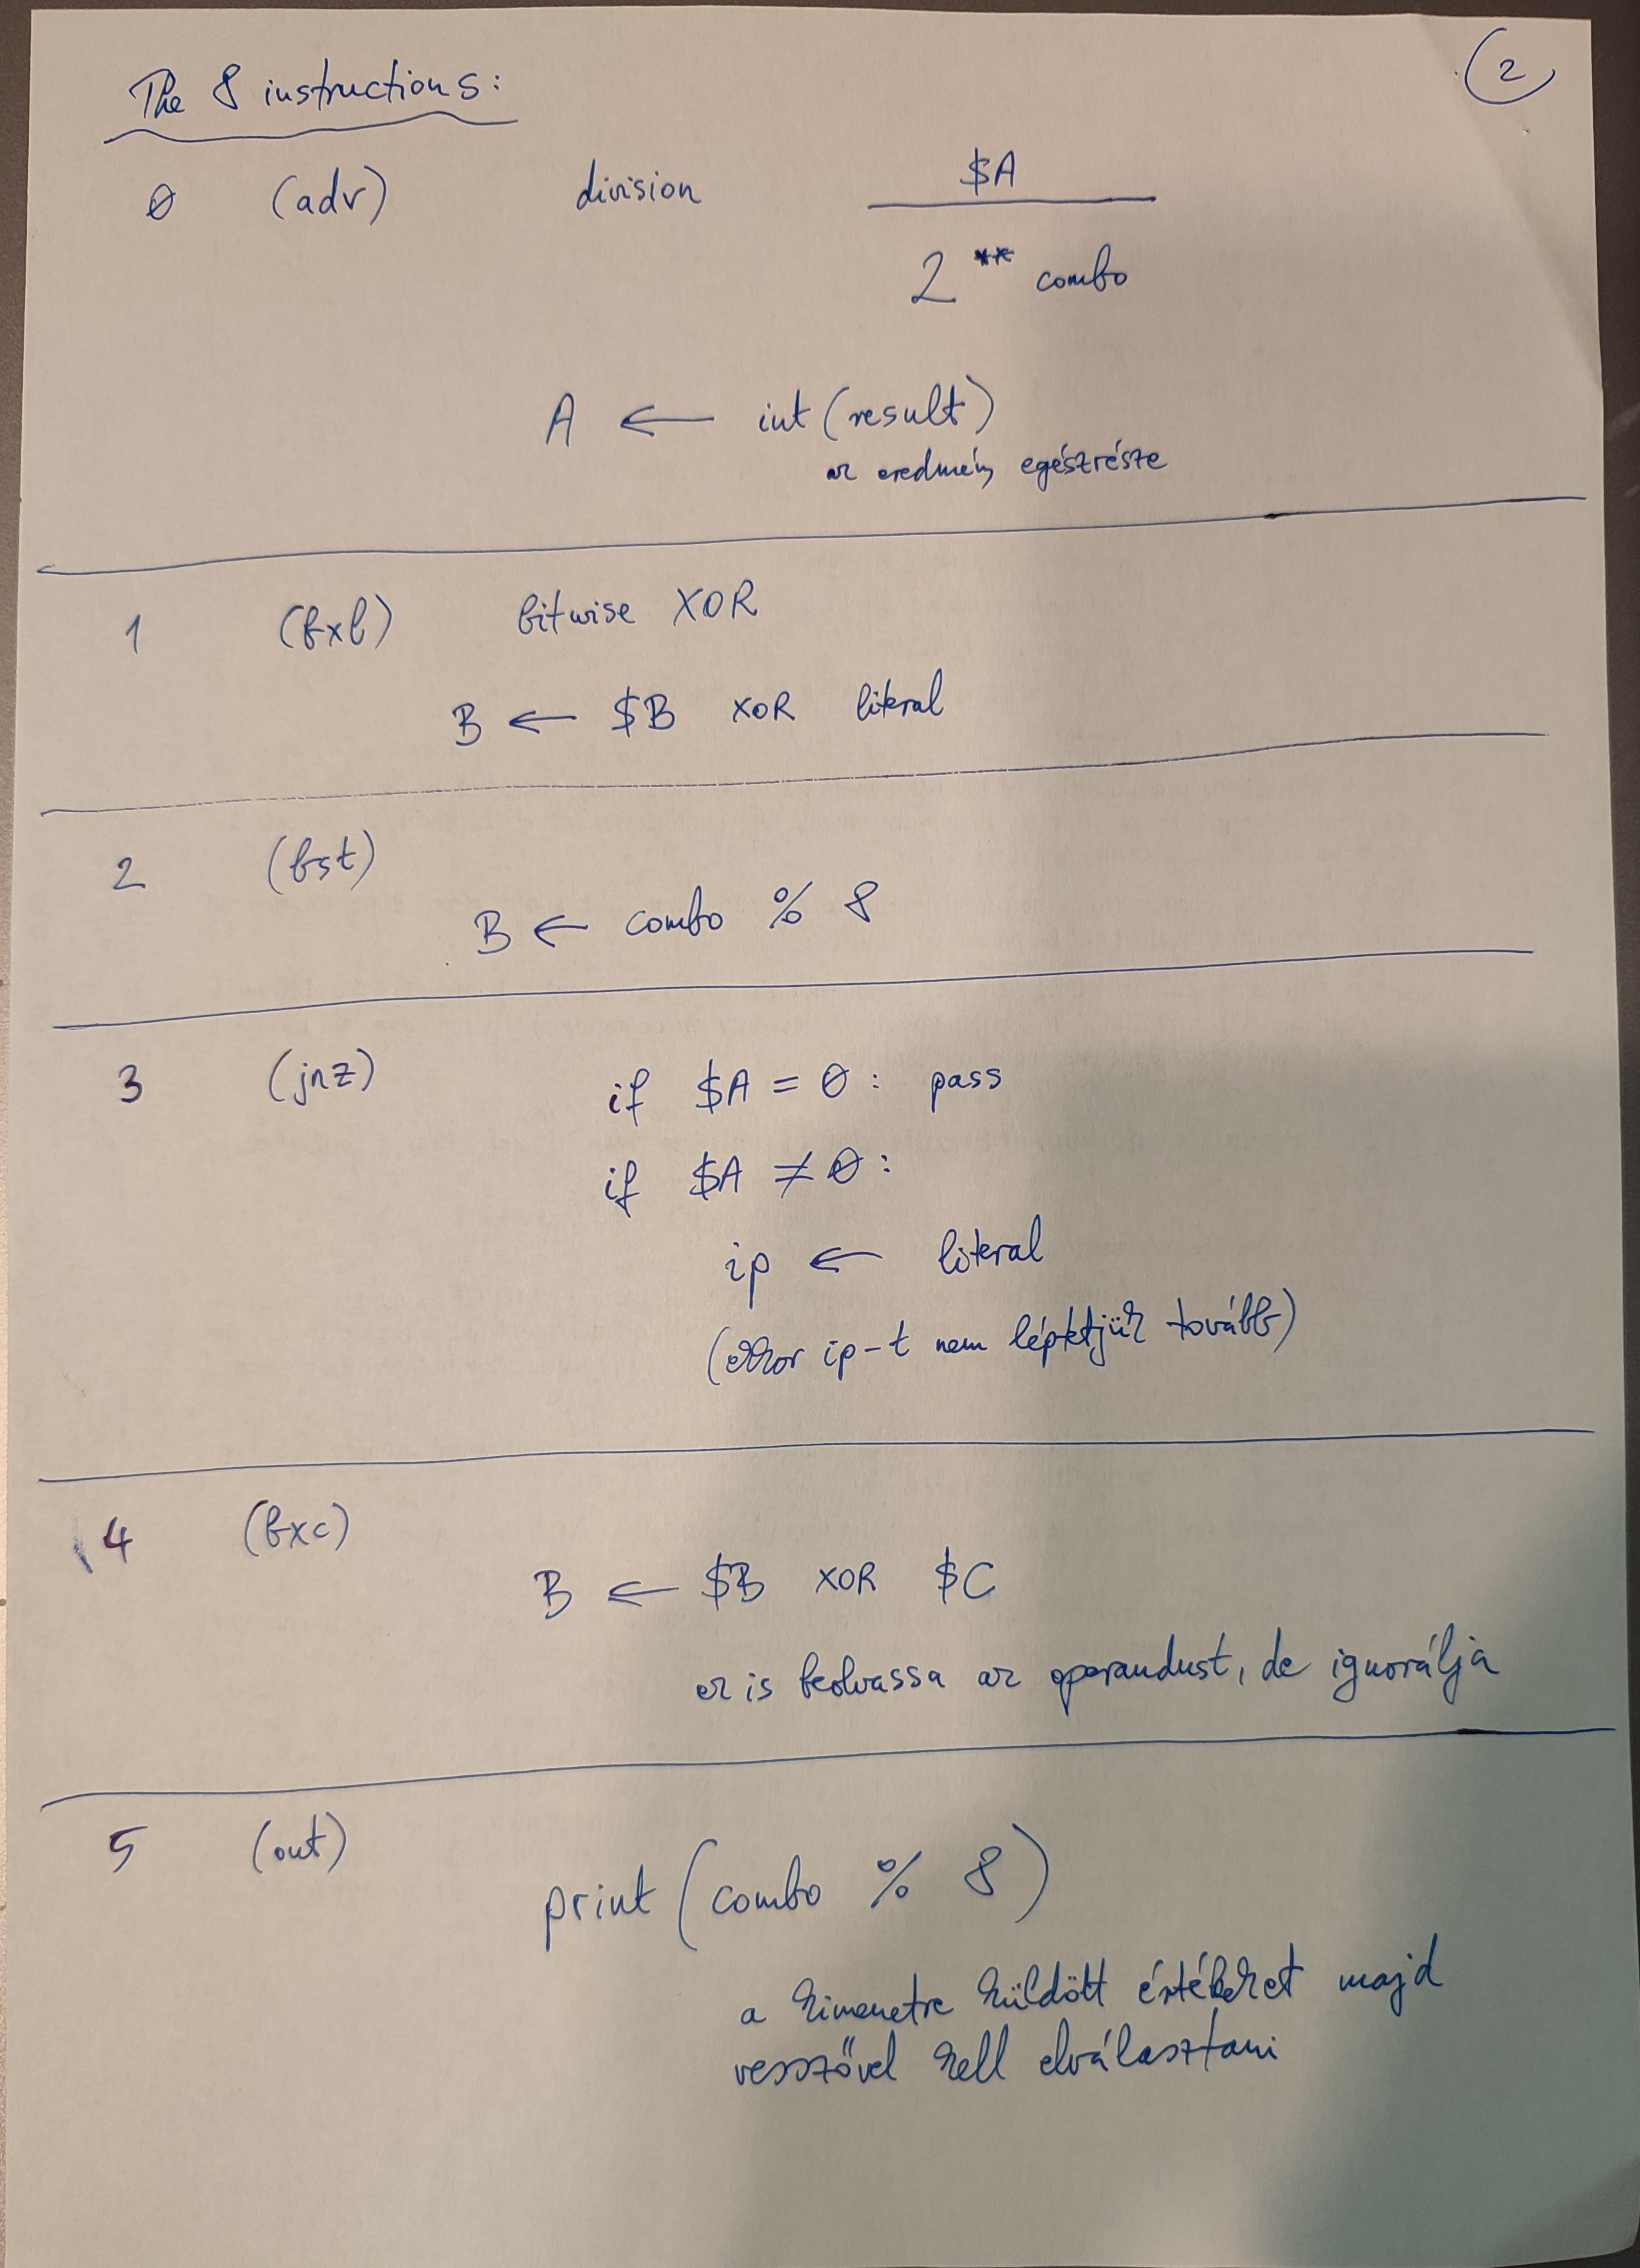 The 8 instructions:
2
0 (adv) division $A
2 ** combo
A ← int (result)
az eredmény egészrésze
1 (bxl) bitwise XOR
B ← $B XOR literal
2 (bst)
B ← combo % 8
3 (jnz) if $A = 0 : pass
if $A ≠ 0 :
ip ← literal
(ekkor ip-t nem léptetjük tovább)
4 (bxc)
B ← $B XOR $C
ez is beolvassa az operandust, de ignorálja
5 (out)
print (combo % 8)
a kimenetre küldött értékeket majd
vesszővel kell elválasztani